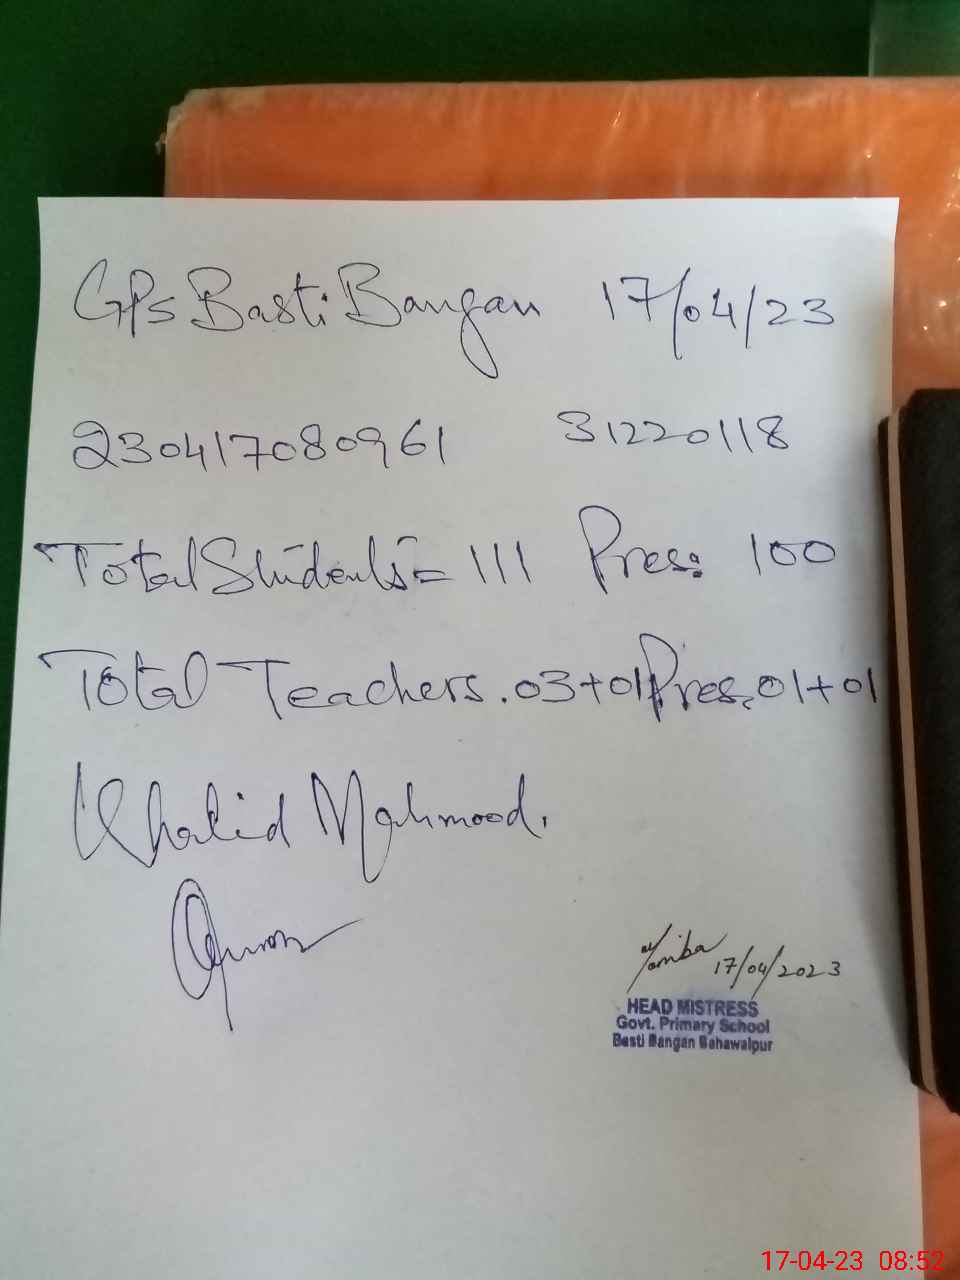 GPS Basti Bangan 17/04/23
230417080961 31220118
Total Students = 111 Pres: 100
Total Teachers. 03+01 Pres. 01+01
Khalid Mahmood.
17/04/2023
HEAD MISTRESS
Govt. Primary School
Basti Bangan Bahawalpur
17-04-23 08:52